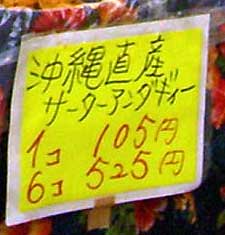 沖縄直産
サーターアンダギィー
1コ 105円
6コ 525円